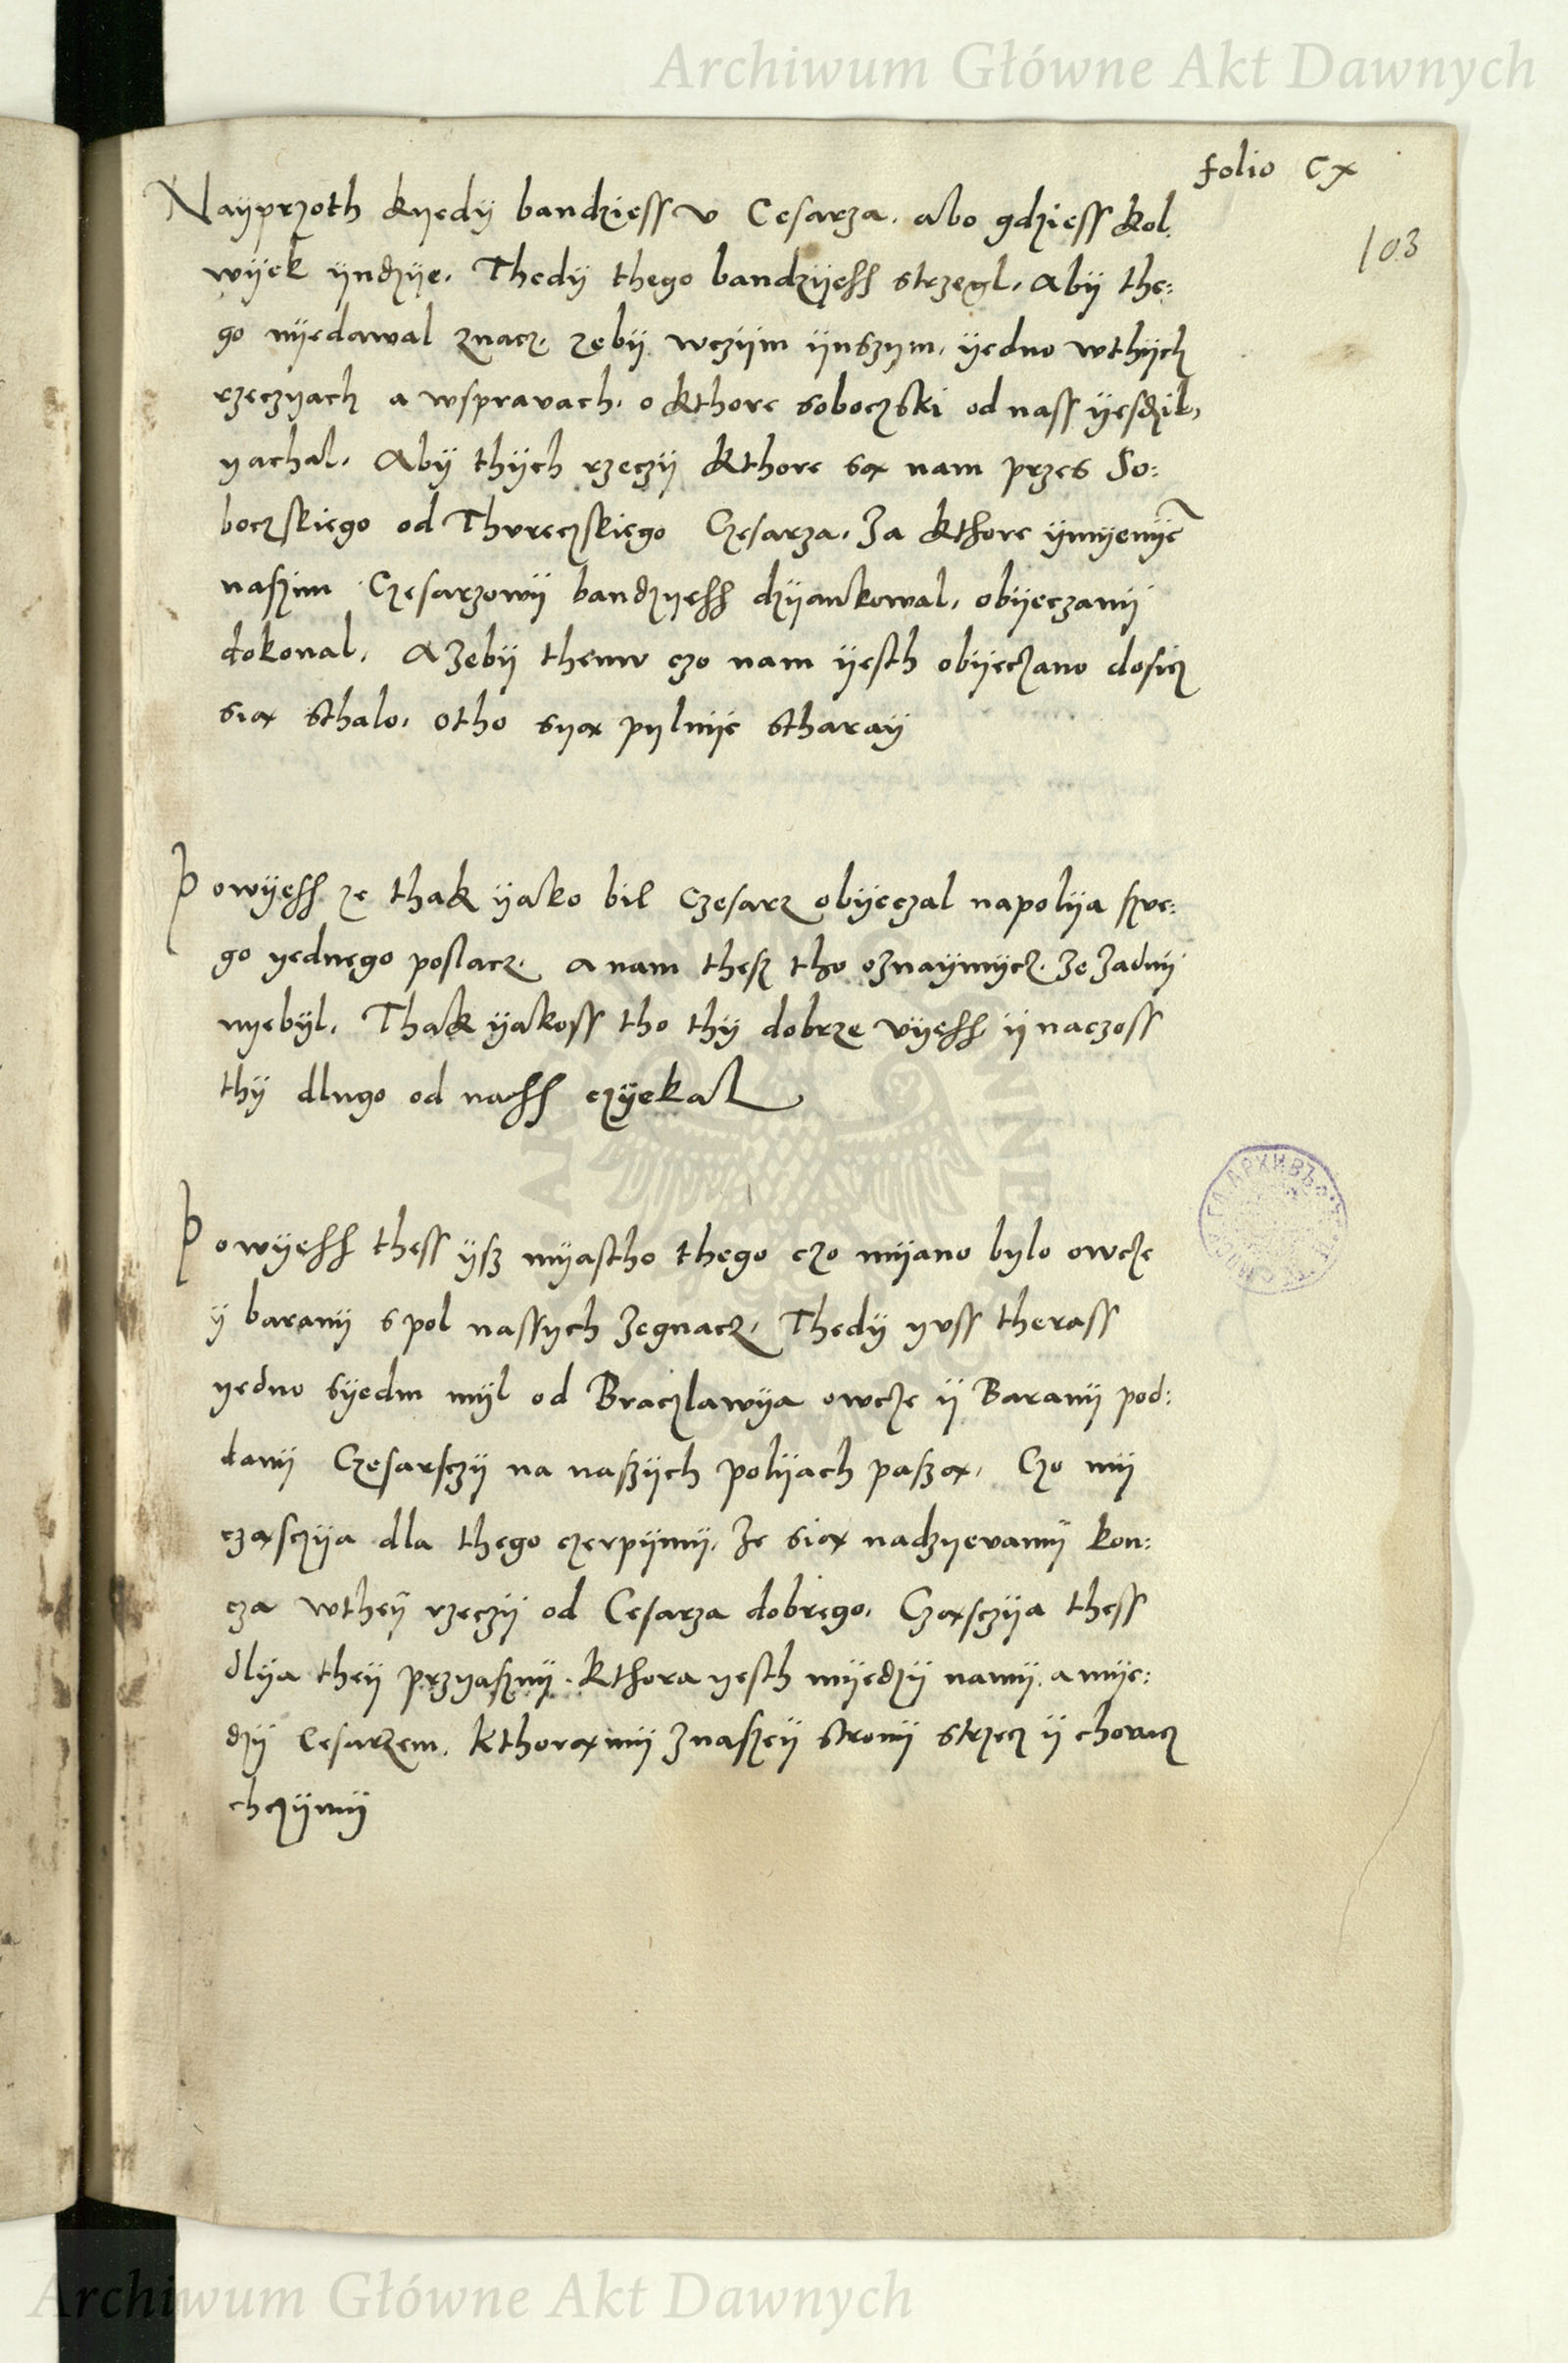 Archiwum Główne Akt Dawnych
folio Cx
103
Nayprzoth kyedÿ bandziess v Cesarza. abo gdziess kol
wÿek ÿndzÿe. Thedÿ thego bandzÿess strzegl. Abÿ the:
go nÿedawal znacz. zebÿ wczÿm ÿnszym. ÿedno wthÿch
rzeczyach a wspravach. o kthore soboczski od nass ÿesdzil,
yachal. Abÿ thÿch rzeczÿ kthore sα nam przes So:
boczskiego od Thvreczskiego Czesarza. Za kthore ÿmyenÿe
naszim Czesarzowÿ bandzyess dzÿankowal. obÿeczanÿ
dokonal. A Zebÿ themv czo nam ÿesth obÿeczano dosicz
siα sthalo. Otho syα pylnÿe stharaÿ
Powÿess ze thak ÿako bil Czesarz obÿeczal napolÿa szve:
go yednego poslacz. A nam thesz tho oznaÿmycz. Ze Zadnÿ
nyebÿl. Thak ÿakoss tho thÿ dobrze vÿess ÿ naczoss
thÿ dlugo od nass czÿekal
Powÿess thess ÿsz myastho thego czo mÿano bylo owcze
ÿ baranÿ s pol nassych Zegnacz. Thedÿ yvss therass
yedno sÿedm mÿl od Braczlawÿa owcze ÿ Baranÿ pod:
danÿ Czesarsczÿ na naszÿch polÿach paszα. Czo mÿ
czαsczÿa dla thego czerpÿmÿ. Ze siα nadzyevamÿ kon:
cza wtheÿ rzeczÿ od Cesarza dobrego. Czαsczÿa thess
dlÿa theÿ przyasznÿ. kthora yesth mÿedzÿ namÿ. a mÿe:
dzÿ Cesarzem. kthorαmÿ Znaszeÿ stronÿ strzecz ÿ chovacz
chczÿmÿ
Archiwum Główne Akt Dawnych